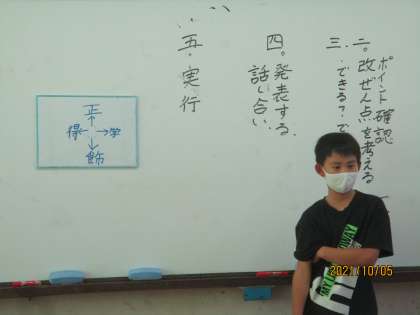 ポイント確認
二。改ぜん点を考える
三.できる?で
四。発表する
話い合い
五.実行
正
得←→学
飾
2021/10/05